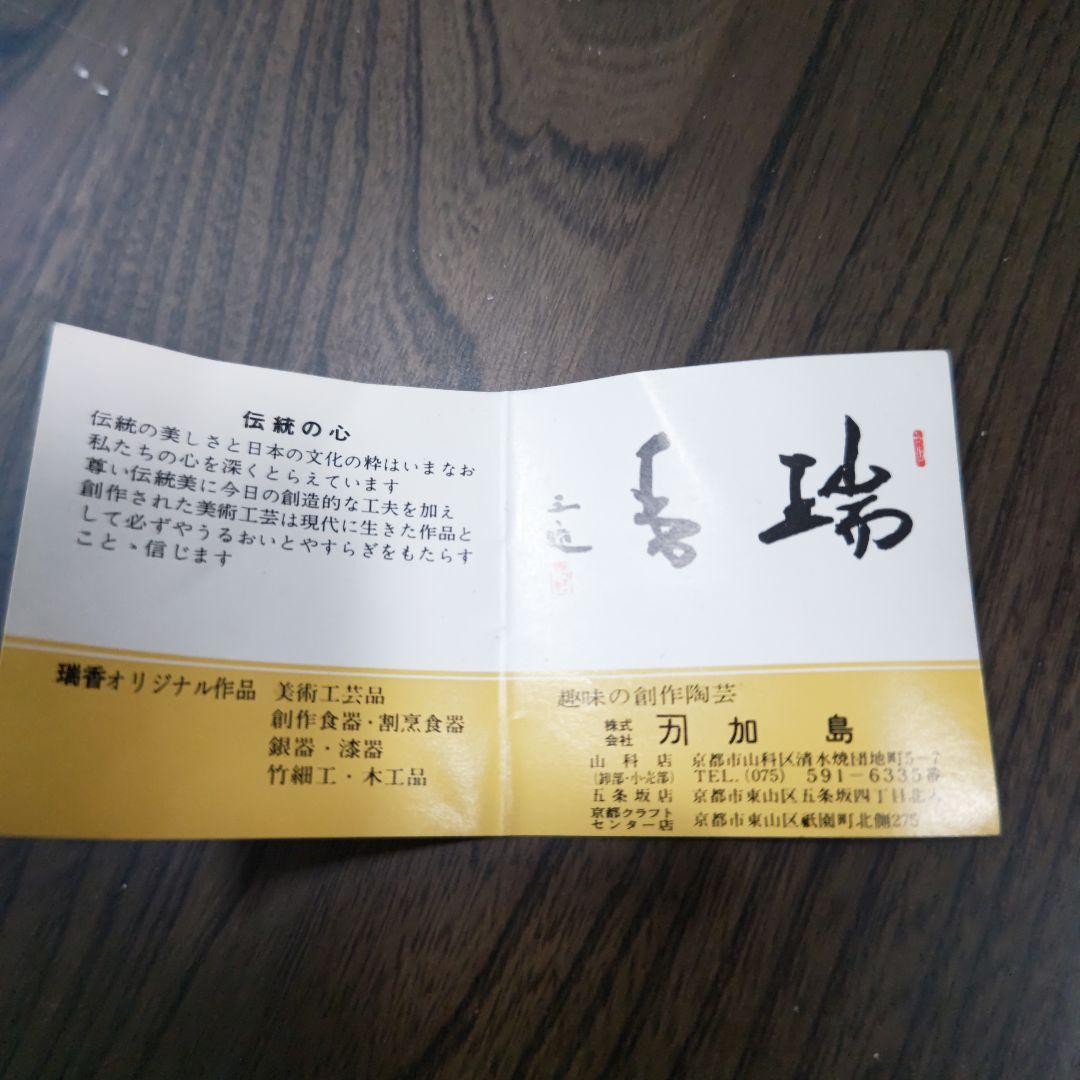 伝統の心
伝統の美しさと日本の文化の粋はいまなお
私たちの心を深くとらえています
尊い伝統美に今日の創造的な工夫を加え
創作された美術工芸は現代に生きた作品と
して必ずやうるおいとやすらぎをもたらす
こと、信じます
瑞香オリジナル作品 美術工芸品
創作食器・割烹食器
銀器・漆器
竹細工・木工品
瑞香
趣味の創作陶芸
株式会社 加島
山科店 京都市山科区清水焼団地町5-7
(卸部・小売部) TEL.(075) 591-6335番
五条坂店 京都市東山区五条坂四丁目北入
京都クラフトセンター店 京都市東山区祇園町北側275